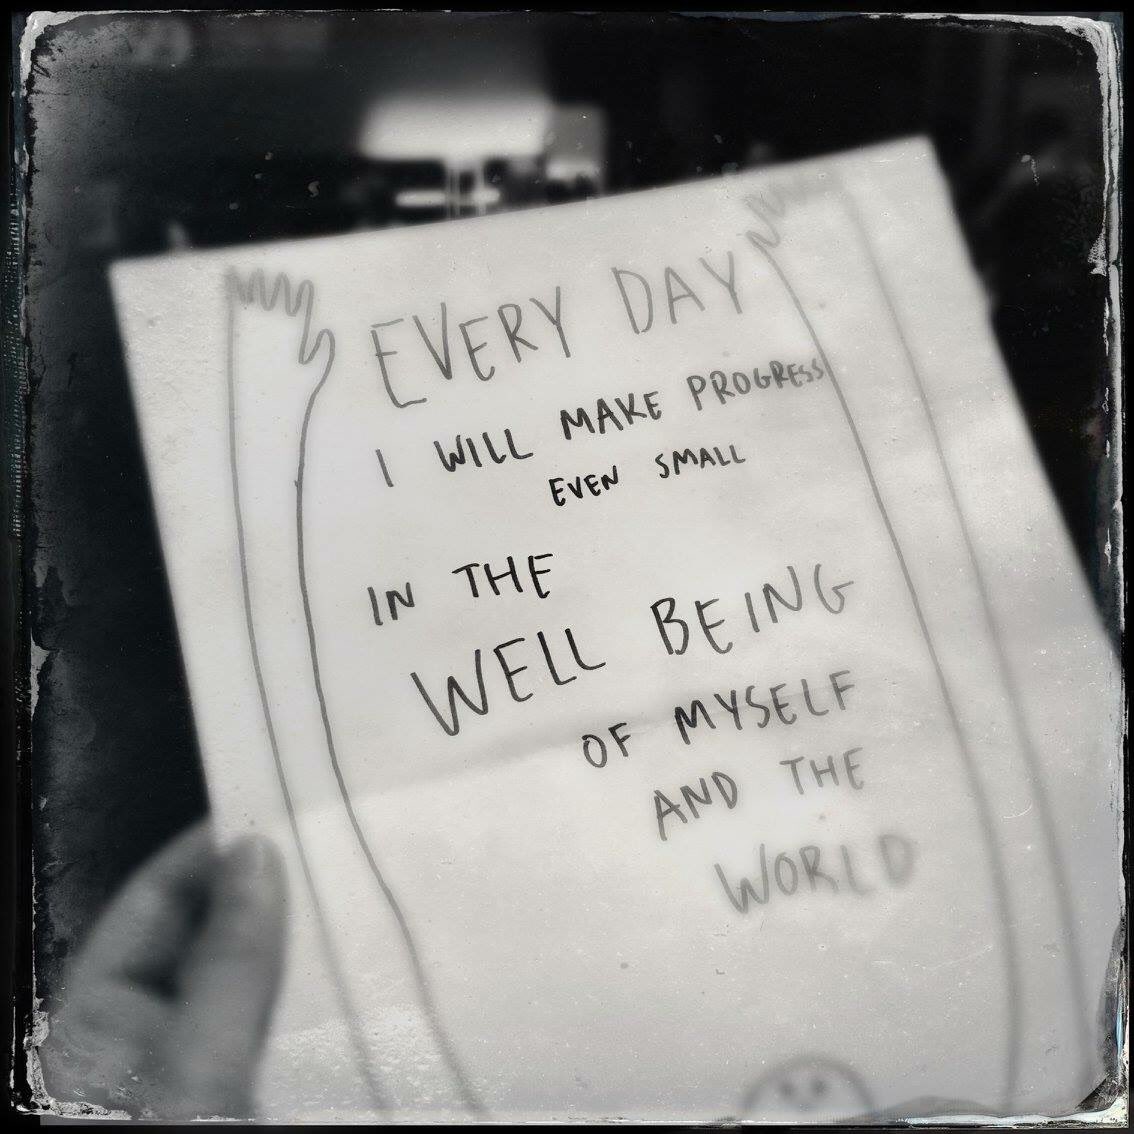 EVERY DAY
I WILL MAKE PROGRESS
EVEN SMALL
IN THE
WELL BEING
OF MYSELF
AND THE
WORLD